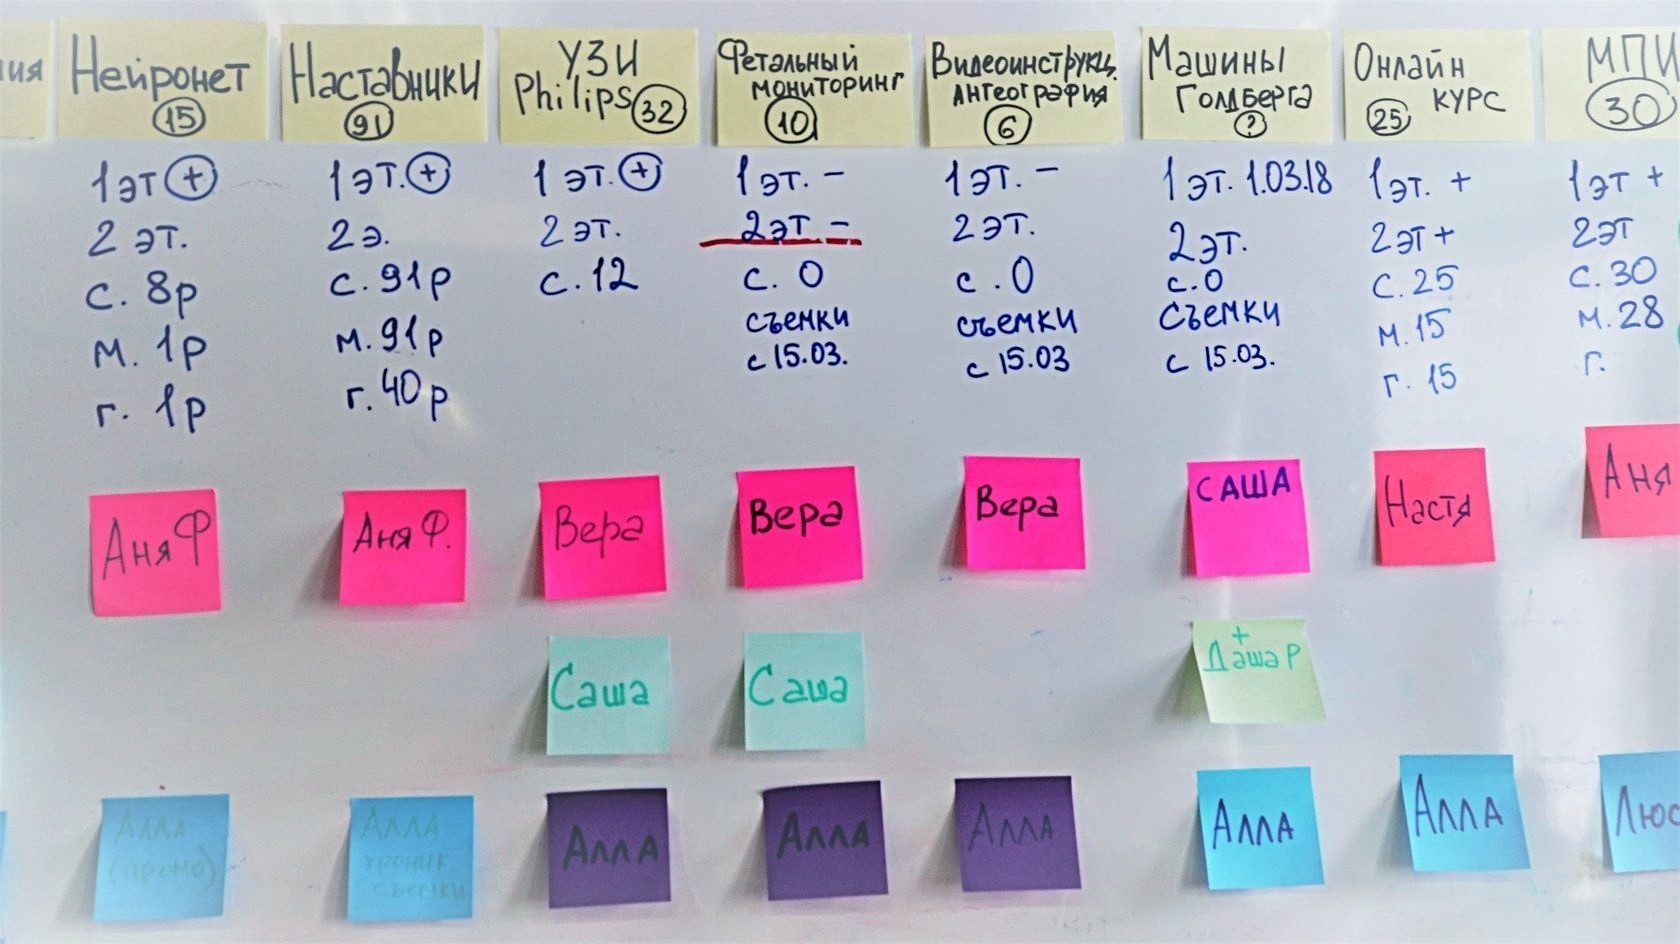 ия
Нейронет
15
1 эт +
2 эт.
с. 8р
м. 1р
г. 1р
Аня Ф
Алла
(промо)
Наставники
91
1 эт. +
2 э.
с. 91р
м. 91р
г. 40р
Аня Ф.
Алла
хроник.
съемки
УЗИ
Philips 32
1 эт. +
2 эт.
с. 12
Вера
Саша
Алла
Фетальный
мониторинг
10
1 эт. -
2 эт -
с. 0
съемки
с 15.03.
Вера
Саша
Алла
Видеоинструкц.
ангеография
6
1 эт. -
2 эт.
с. 0
съемки
с 15.03
Вера
Алла
Машины
Голдберга
?
1 эт. 1.03.18
2 эт.
с. 0
Съемки
с 15.03.
САША
+
Даша Р
Алла
Онлайн
курс
25
1 эт. +
2 эт +
с. 25
м. 15
г. 15
Настя
Алла
МПИ
30
1 эт +
2 эт
с. 30
м. 28
г.
Аня
Люс